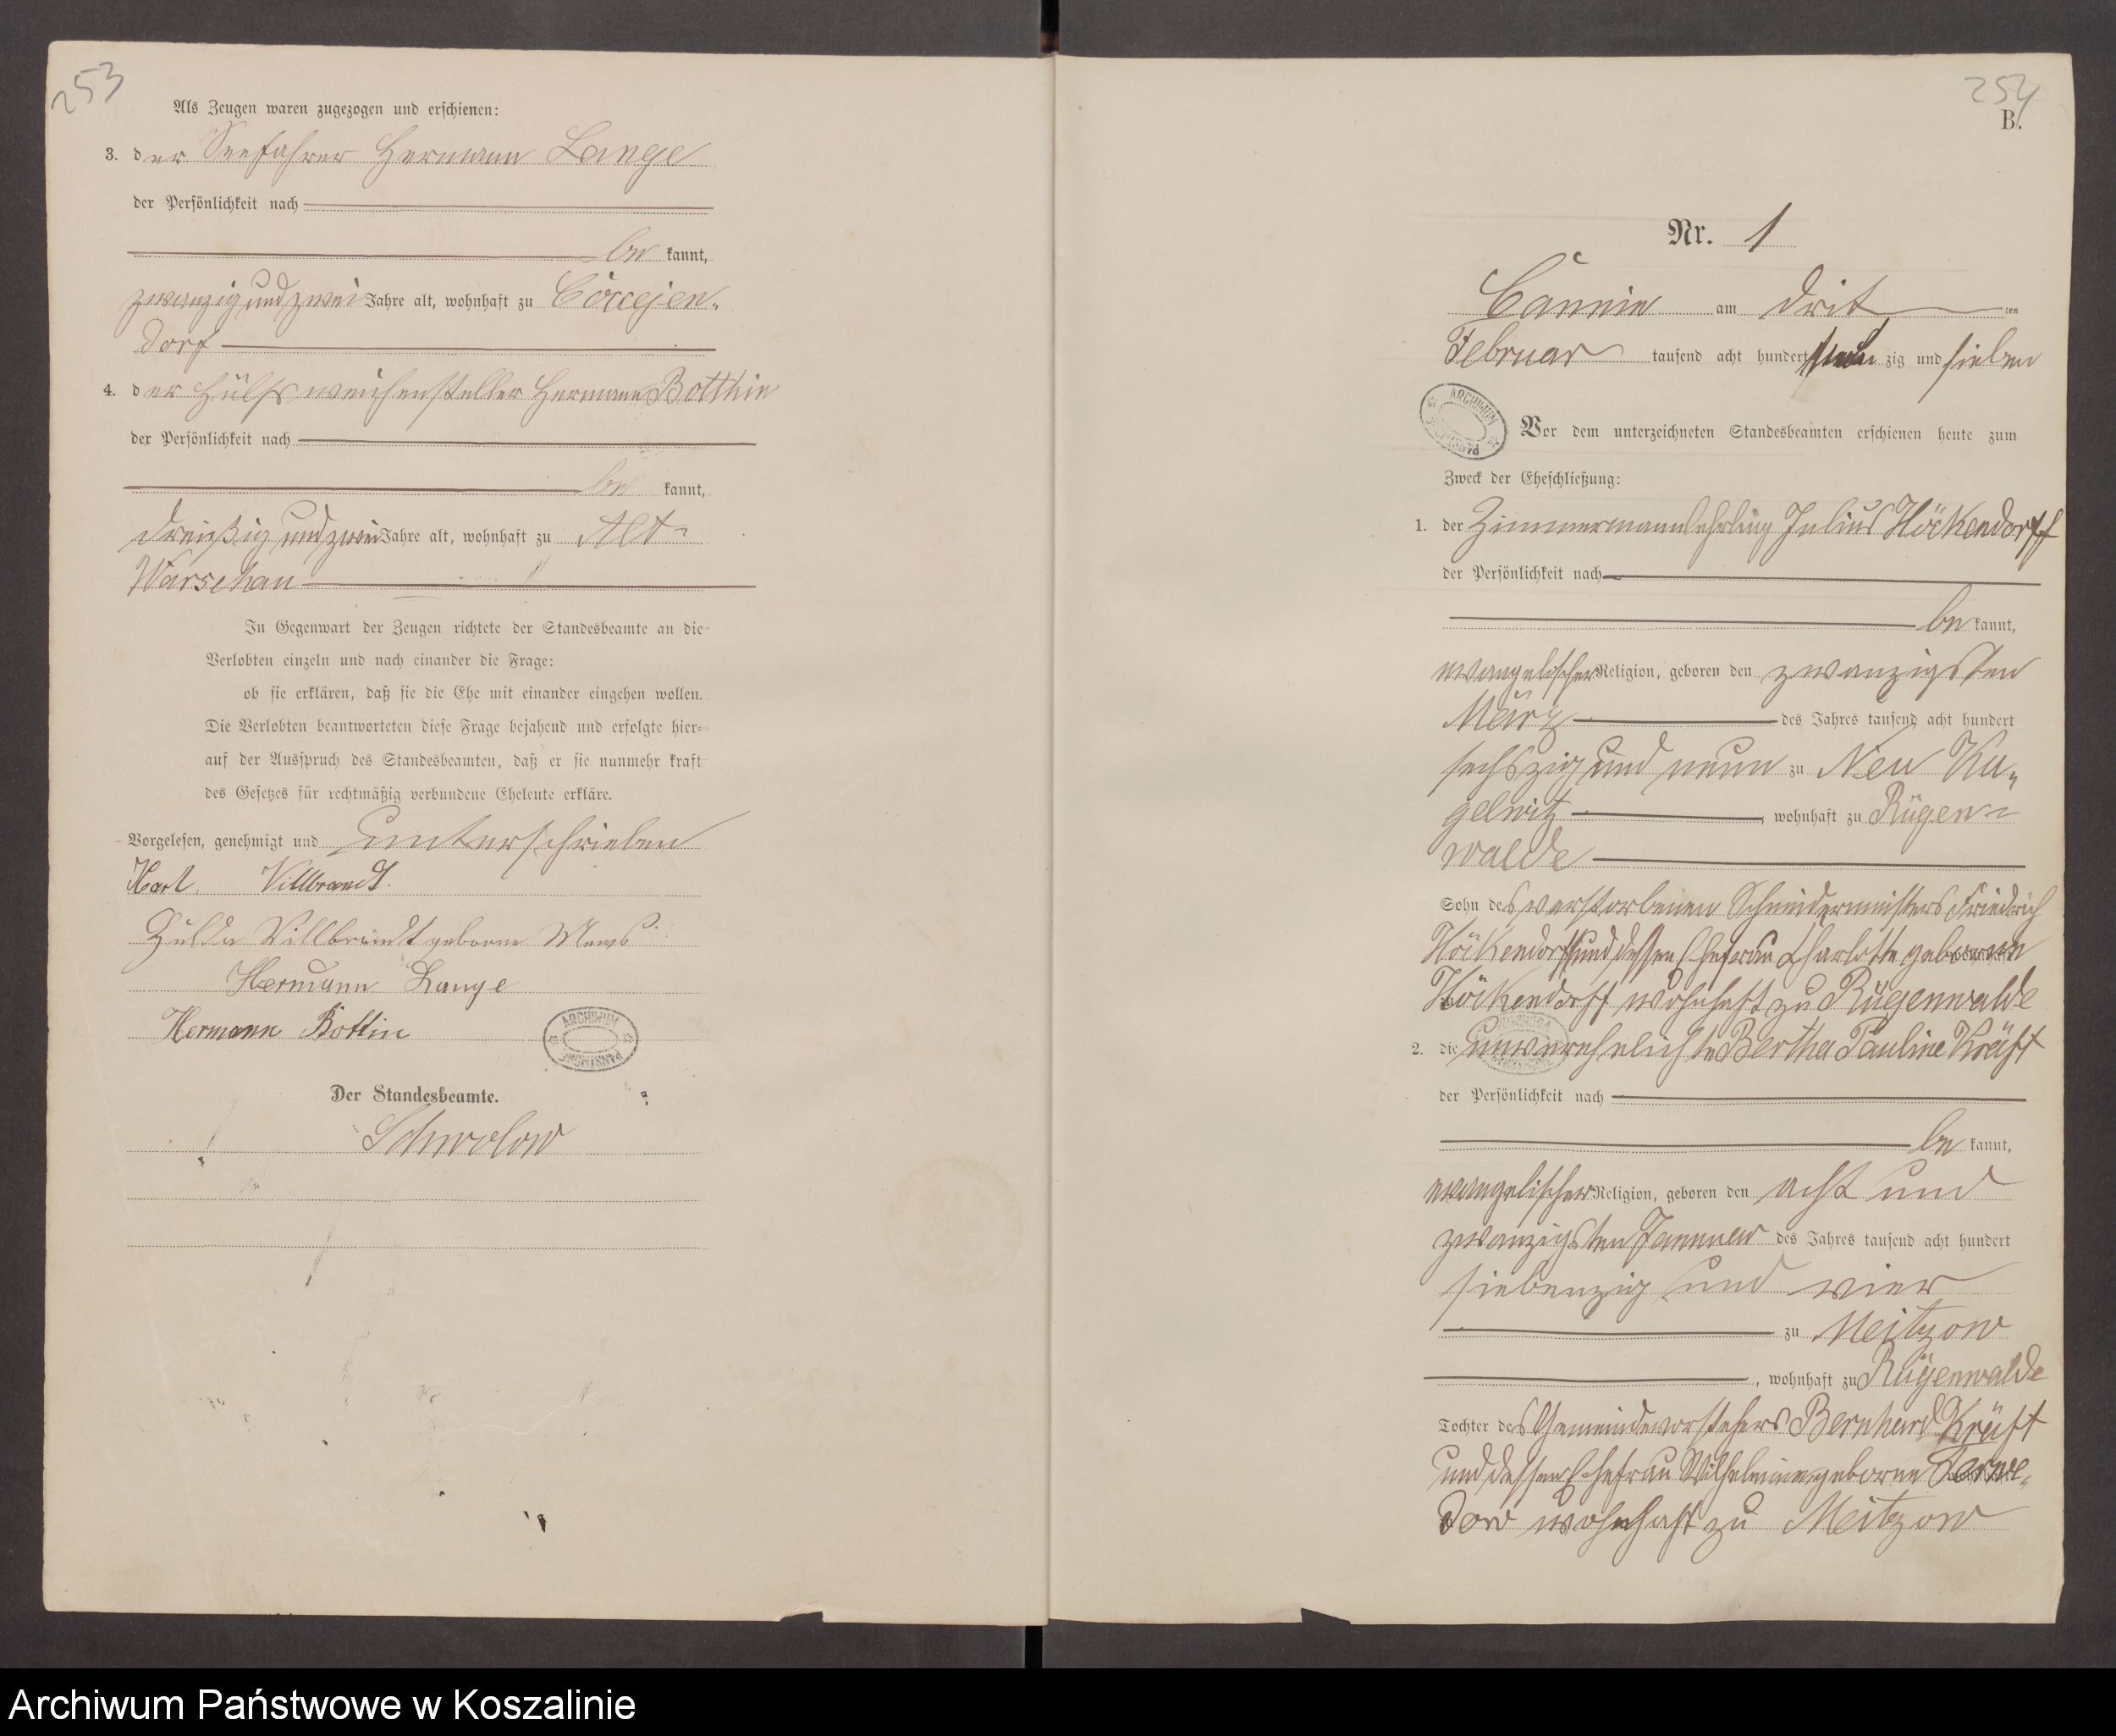 253
Als Zeugen waren zugezogen und erschienen:
3. der Seefahrer Hermann Lange
der Persönlichkeit nach
be kannt,
zwanzig und zwei Jahre alt, wohnhaft zu Coccejen-
dorf
4. der Hülfsweichensteller Hermann Botthin
der Persönlichkeit nach
be kannt,
dreißig und zwei Jahre alt, wohnhaft zu Alt-
Warschau
In Gegenwart der Zeugen richtete der Standesbeamte an die
Verlobten einzeln und nach einander die Frage:
ob sie erklären, daß sie die Ehe mit einander eingehen wollen.
Die Verlobten beantworteten diese Frage bejahend und erfolgte hier-
auf der Ausspruch des Standesbeamten, daß er sie nunmehr kraft
des Gesetzes für rechtmäßig verbundene Eheleute erkläre.
Vorgelesen, genehmigt und unterschrieben
Karl Villbrandt.
Hulda Villbrandt geborne Mews
Hermann Lange
Hermann Bottin
Der Standesbeamte.
Schwolow
254
B.
Nr. 1
Cannin am drit ten
Februar tausend acht hundert neun zig und sieben
Vor dem unterzeichneten Standesbeamten erschienen heute zum
Zweck der Eheschließung:
1. der Zimmermannlehrling Julius Höckendorff
der Persönlichkeit nach
be kannt,
evangelischer Religion, geboren den zwanzigsten
März des Jahres tausend acht hundert
sechszig und neun zu Neu Ku-
gelwitz, wohnhaft zu Rügen-
walde
Sohn des verstorbenen Schneidermeisters Friedrich
Höckendorff und dessen Ehefrau Charlotte geborenen
Höckendorff wohnhaft zu Rügenwalde
2. die unverehelichte Bertha Pauline Kräft
der Persönlichkeit nach
be kannt,
evangelischer Religion, geboren den acht und
zwanzigsten Januar des Jahres tausend acht hundert
siebenzig und vier
zu Meitzow
, wohnhaft zu Rügenwalde
Tochter des Gemeindevorstehers Bernhard Kräft
und dessen Ehefrau Wilhelmine geborne
dow wohnhaft zu Meitzow
Archiwum Państwowe w Koszalinie